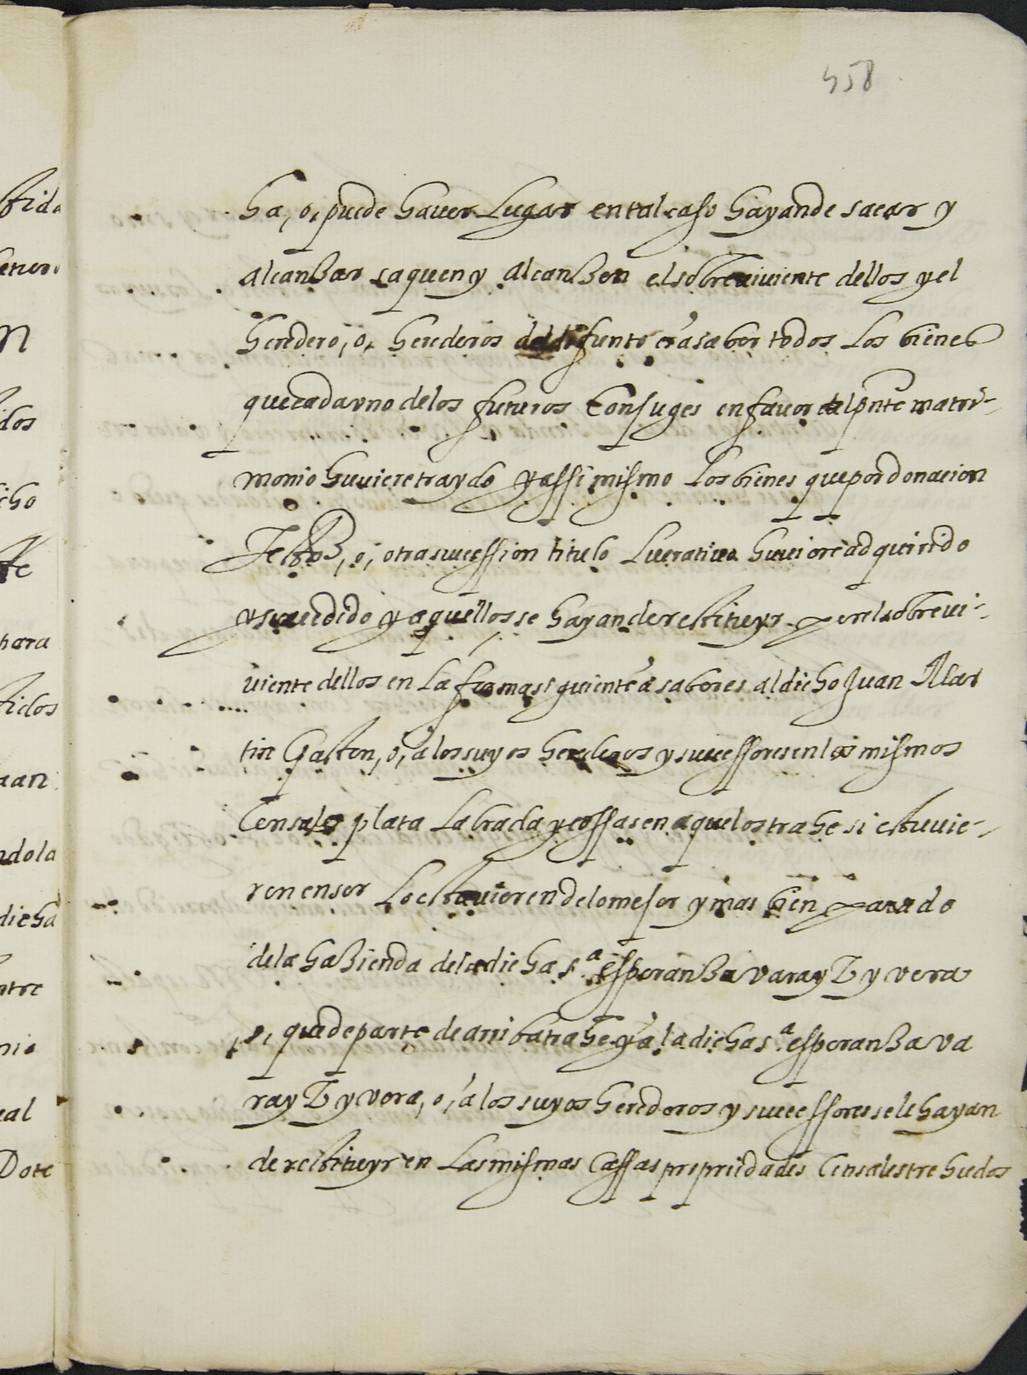 458
ha, o, puede haver Lugar en tal caso hayan de sacar y
alcanzar saquen y alcanzen el sobreviviente dellos y el
heredero, o, herederos del difunto es a saber todos Los bienes
que cada uno de los futuros Conjuges en favor del pnte matri-
monio huviere traydo y assi mismo Los bienes que por donacion
o, otra sucession titulo Lucrativo huviere adquirido
y sucedido y aquellos se hayan de restituyr por el sobrevi-
viente dellos en La forma siguiente a saber es al dicho Juan Mar
tin Gaston, o, a los suyos herederos y sucessores en los mismos
Censales plata Labrada y cossas en aquel os trahe si estuvie-
ren en ser Lo estuvieren de lo mejor y mas bien parado
de la hazienda de la dicha s.ª esperanza varayz y vera
o, que de parte de arriba trahe y a la dicha s.ª esperanza va
rayz y vera, o, a los suyos herederos y sucessores se le hayan
de restituyr en Las mismas Cassas propriedades Censales trehudos
ndola
dicha
ntre
Dote